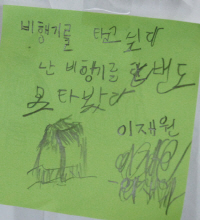 비행기를 타고싶다
난 비행기를 한번도
못타봤다
이재원